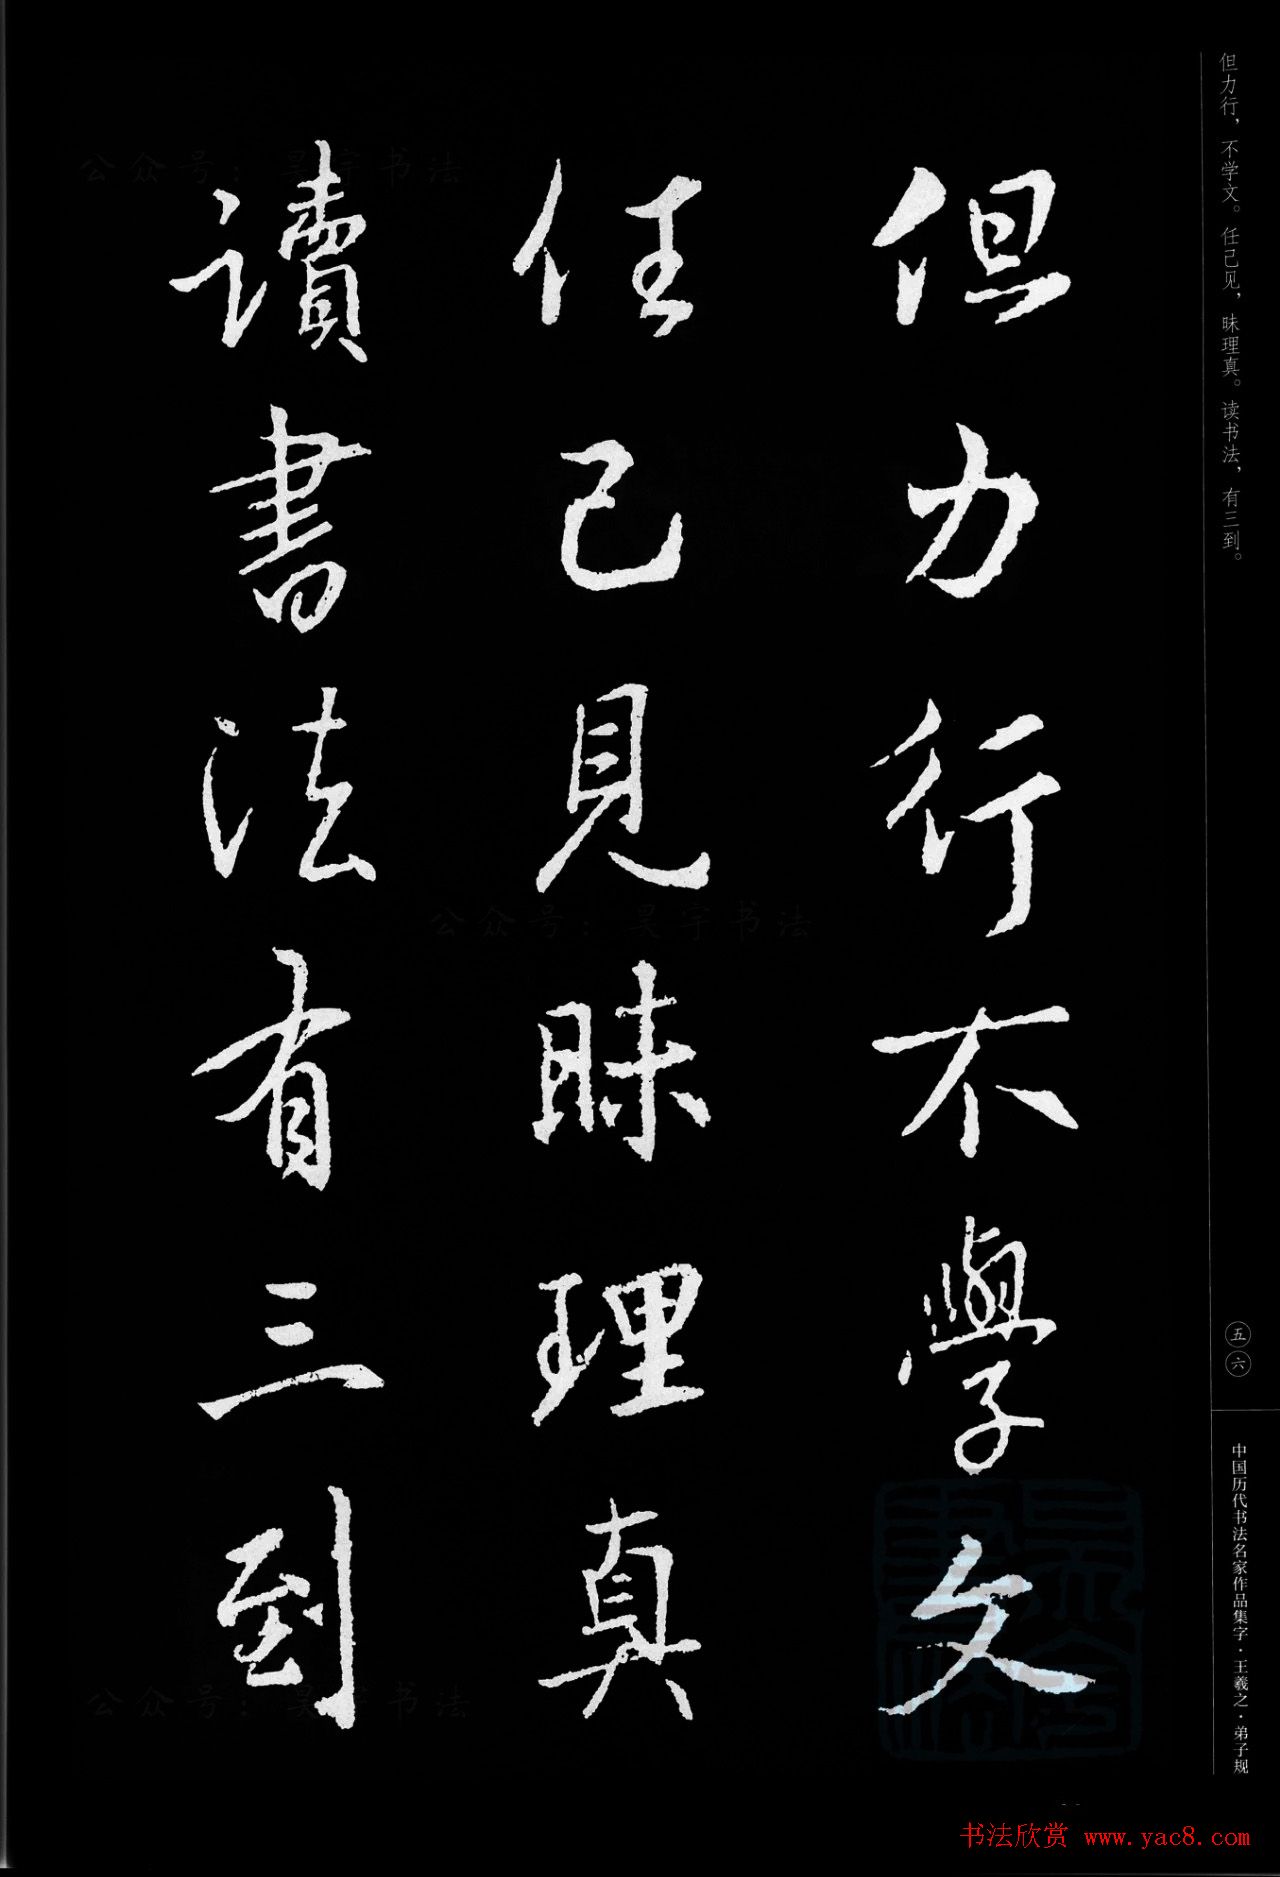 但力行，不学文。任己见，昧理真。读书法，有三到。
但力行不學文
任己見昧理真
讀書法有三到
五六
中国历代书法名家作品集字·王羲之·弟子规
公众号：昊宇书法
公众号：昊宇书法
公众号：昊宇书法
书法欣赏 www.yac8.com